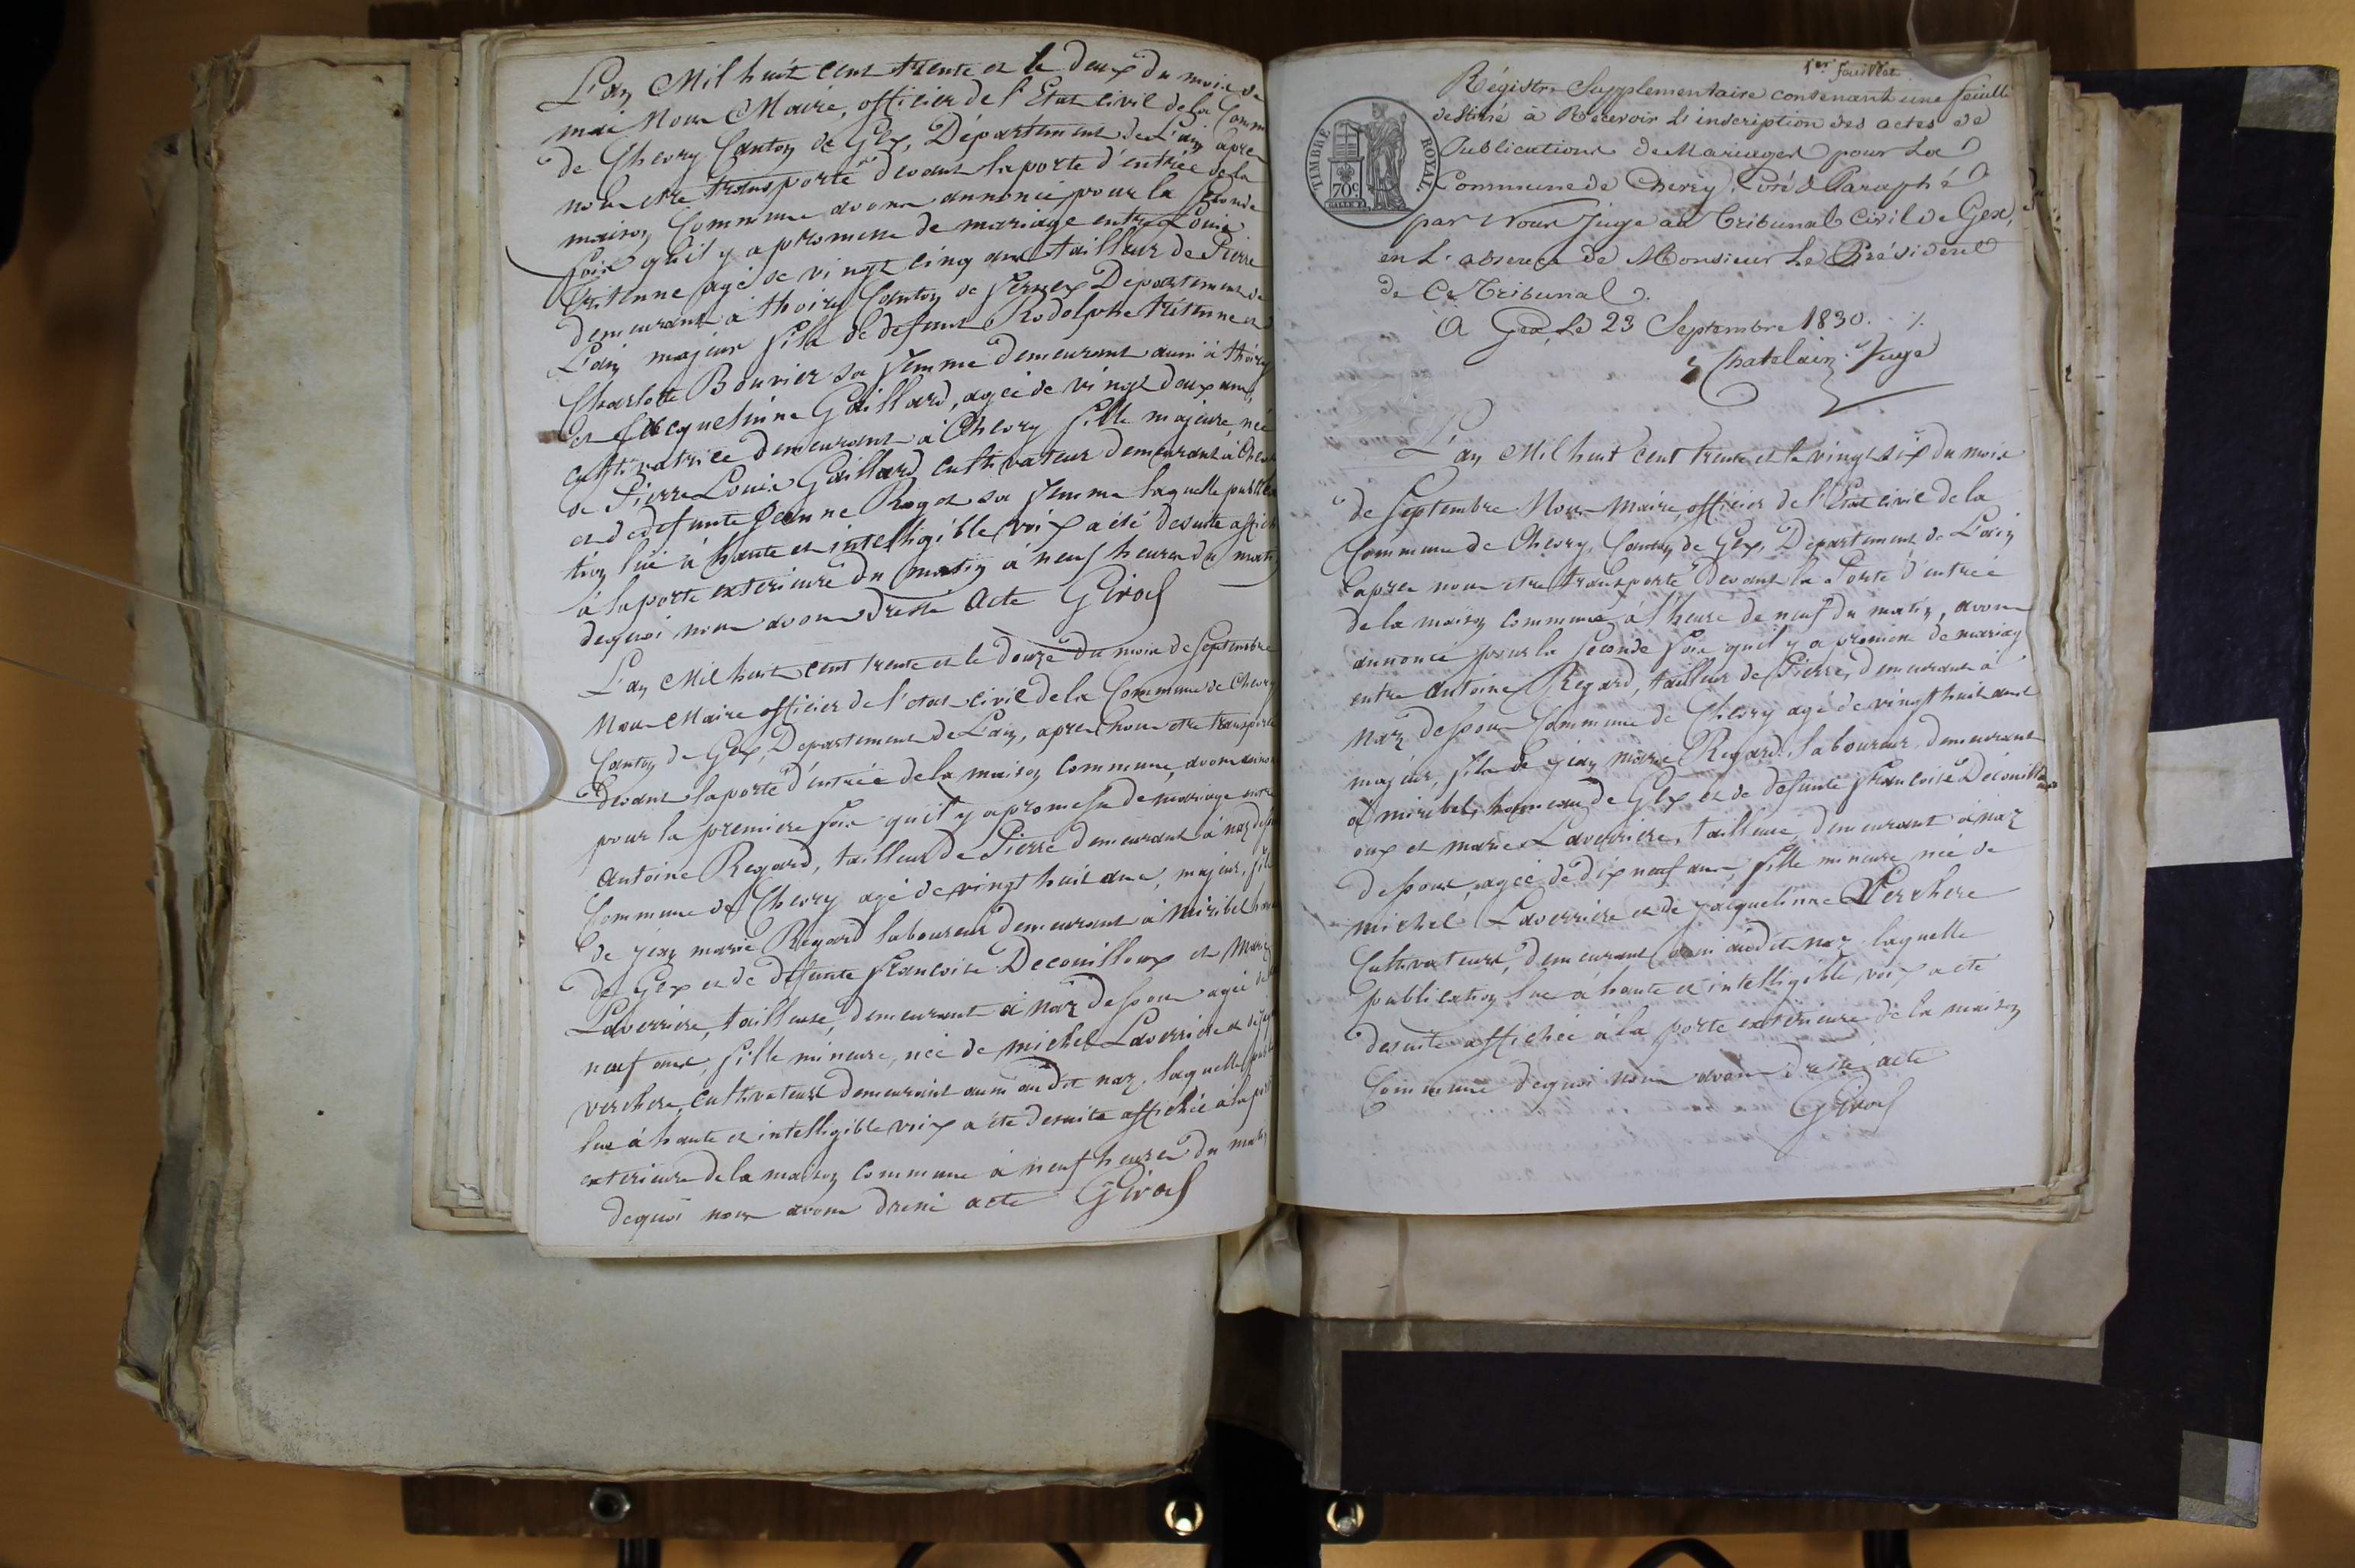 L'an Mil huit cent trente et le deux du mois de
mai Nous Maire, officier de l'Etat civil de la Comm
de Chevry Canton de Gex, Département de L'ain apres
nous etre transporté devant la porte d'entrée de la
maison Commune avons annoncé pour la seconde
fois qu'il y a promesse de mariage entre Louis
Tritenne agé de vingt cinq ans tailleur de Pierre
demeurant à thoiry Canton de ferney Departement de
L'ain majeur fils de defunt Rodolphe tritenne et
Charlotte Bouvier sa femme demeurant aussi à thoiry
et Jacquelinne Gaillard, agée de vingt deux ans,
cultivatrice demeurant à Chevry fille majeure, née
de Pierre Louis Gaillard cultivateur demeurant à Chevry
et de defunte Jeanne Roget sa femme laquelle public
tion lue à haute et intelligible voix a été desuite affich
à la porte exterieure du matin à neuf heures du matin
dequoi nous avons dressé Acte Girod
L'an Mil huit cent trente et le douze du mois de Septembre
Nous Maire officier de l'etat civil de la Commune de Chevry
Canton de Gex, Departement de L'ain, apres nous etre transporté
devant la porte d'entrée de la maison Commune, avons annon
pour la premiere fois qu'il y a promesse de mariage entre
Antoine Regard, tailleur de Pierre demeurant à naz dess
Commune de Chevry agé de vingt huit ans, majeur, fils
de jean marie Regard laboureur demeurant à Miribel ham
de Gex et de defunte francoise Decouilloux et Marie
Laverriere, tailleuse, demeurant à naz dessous agée de
neuf ans, fille mineure, née de michel Laverriere et de jaq
verchere, cultivateurs demeurant aussi audit naz, laquelle pub
lue à haute et intelligible voix a été desuite affichée à la por
exterieure de la maison Commune à neuf heures du matin
dequoi nous avons dressé acte Girod
1er feuillet
Régistre Supplementaire contenant une feuille
destiné à Recevoir L'inscription des actes de
Publications de Mariages pour La
Commune de Chevry, Coté & Paraphé
par Nous Juge au Tribunal Civil de Gex,
en L'absence de Monsieur Le Président
de Ce Tribunal.
A Gex, Le 23 Septembre 1830. ./.
Chatelain Juge
TIMBRE ROYAL.
70c
L'an Mil huit Cent trente et le vingt six du mois
de Septembre Nous Maire, officier de l'Etat civil de la
Commune de Chevry, Canton de Gex, Departement de L'ain
apres nous etre transporté devant la Porte d'entrée
de la maison Commune à l'heure de neuf du matin, avons
annoncé pour la seconde fois qu'il y a promesse de mariag
entre Antoine Regard, tailleur de Pierre, demeurant à
Naz dessous Commune de Chevry agé de vingt huit ans
majeur, fils de jean marie Regard laboureur, demeurant
à miribel, hameau de Gex et de defunte francoise Decouill
oux et marie Laverriere, tailleuse, demeurant à naz
dessous, agée de dix neuf ans, fille mineure née de
michel Laverriere et de jacquelinne Verchere
Cultivateurs, demeurant aussi audit naz laquelle
publication lue à haute et intelligible voix a été
desuite affichée à la porte exterieure de la maison
Commune dequoi nous avons dressé acte
Girod